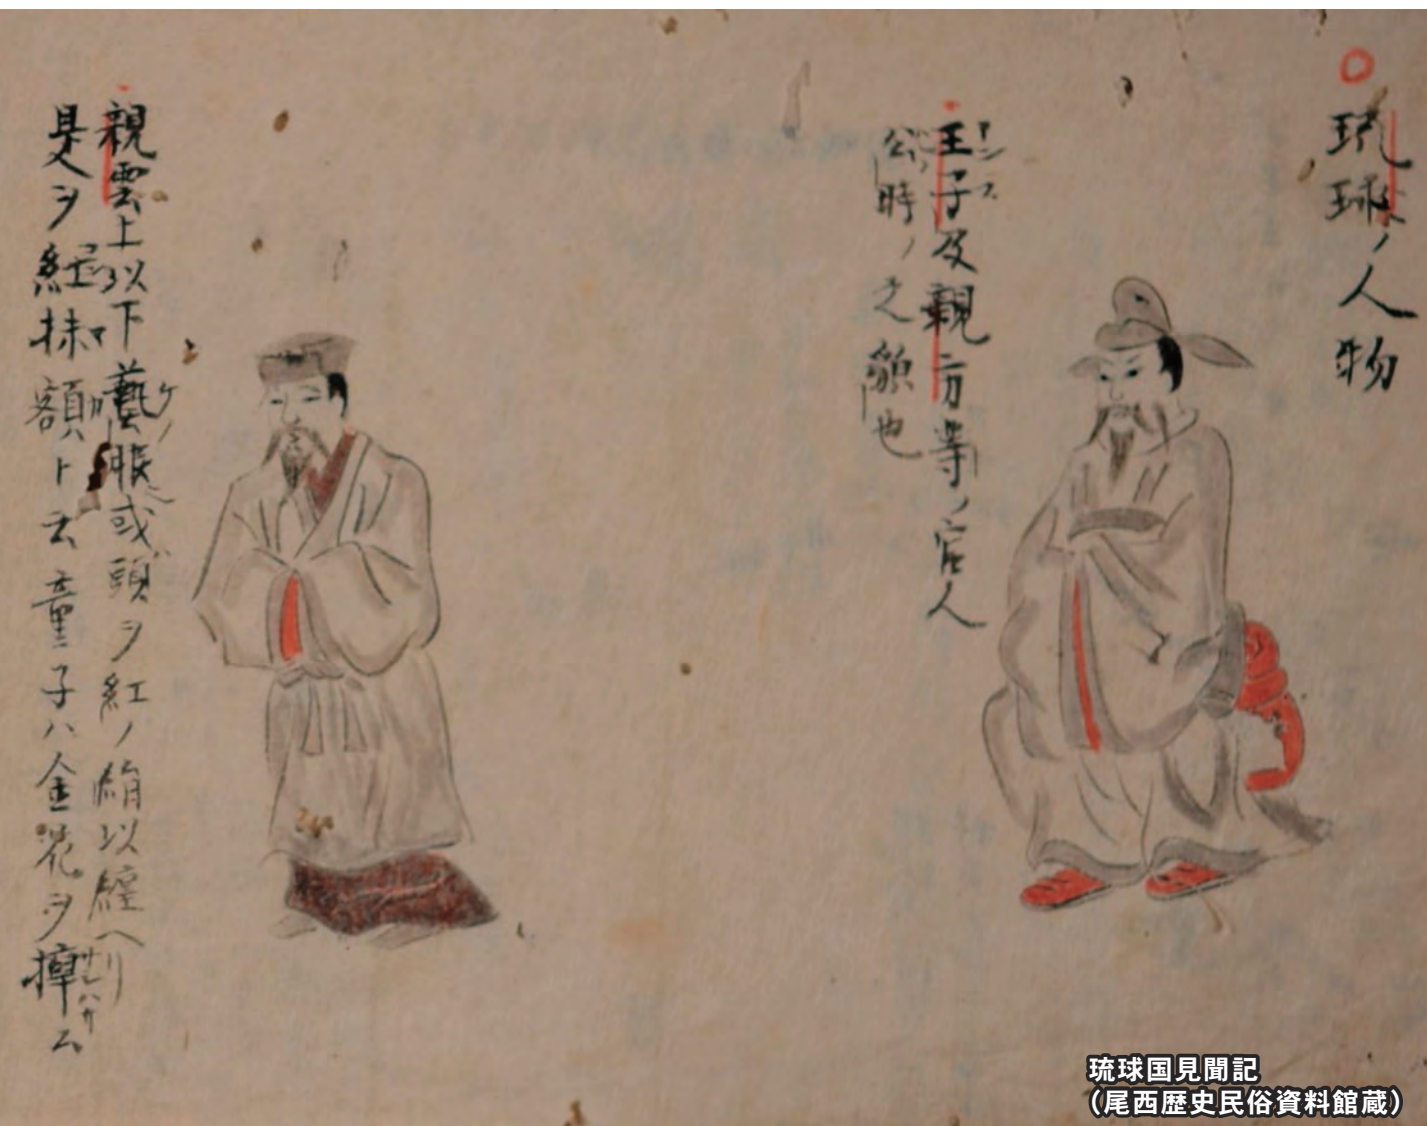 琉球ノ人物
王子及親方等ノ官人
公時ノ之顔也
親雲上以下藝服或頭ヲ紅ノ絹以纏ヘリ
是ヲ紅抹額ト云童子ハ金花ヲ
琉球国見聞記
（尾西歴史民俗資料館蔵）